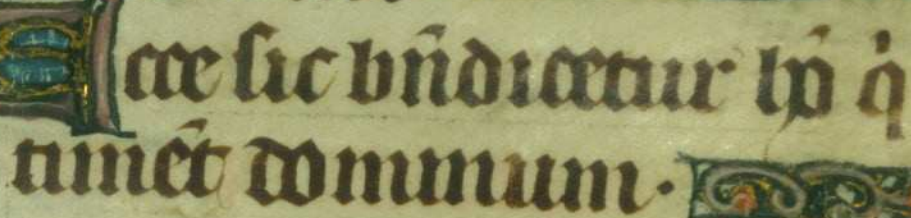 Ecce sic bn̄dicetur hō q̇
timēt dominum·